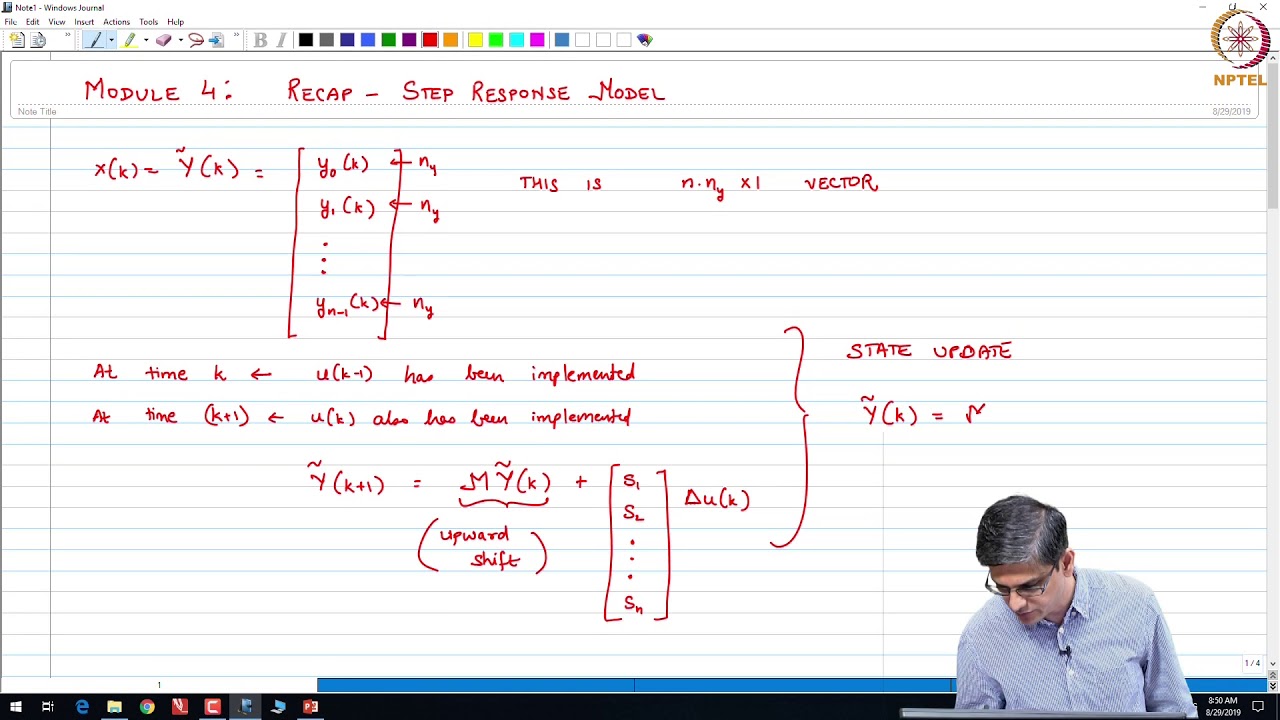 Note1 - Windows Journal
File Edit View Insert Actions Tools Help
B I
NPTEL
MODULE 4: RECAP - STEP RESPONSE MODEL
Note Title
8/29/2019
x(k) = Ỹ(k) = [ y₀(k) ← n_y
y₁(k) ← n_y
⋮
y_{n-1}(k) ← n_y ]
THIS IS n·n_y ×1 VECTOR
At time k ← u(k-1) has been implemented
At time (k+1) ← u(k) also has been implemented
Ỹ(k+1) = M Ỹ(k) + [ S₁
S₂
⋮
Sₙ ] Δu(k)
(upward shift)
STATE UPDATE
Ỹ(k) =
1 / 4
1
8:50 AM
8/29/2019